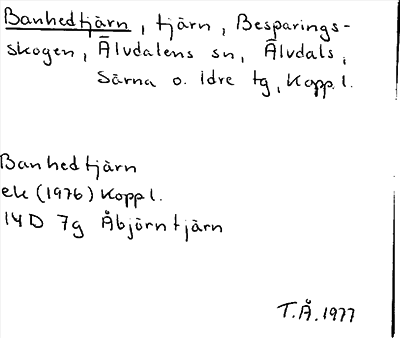 Banhedtjärn, tjärn, Besparings-
skogen, Älvdalens sn, Älvdals,
Särna o. Idre tg, Kopp. l.
Banhedtjärn
ek (1976) Kopp l.
14 D 7g Åbjörntjärn
T.Å. 1977